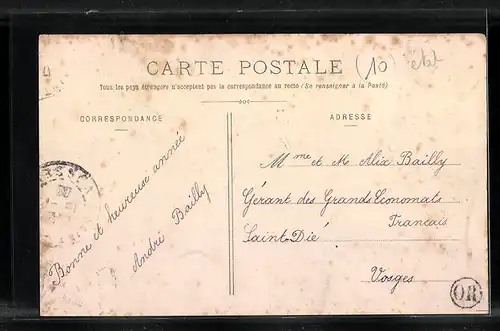 CARTE POSTALE
(10)
état
Tous les pays étrangers n'acceptent pas la correspondance au recto (Se renseigner à la Poste)
CORRESPONDANCE
ADRESSE
Bonne et heureuse année
André Bailly
Mme et Mr Alix Bailly
Gérant des Grands Economats
Francais
Saint-Dié
Vosges
OR